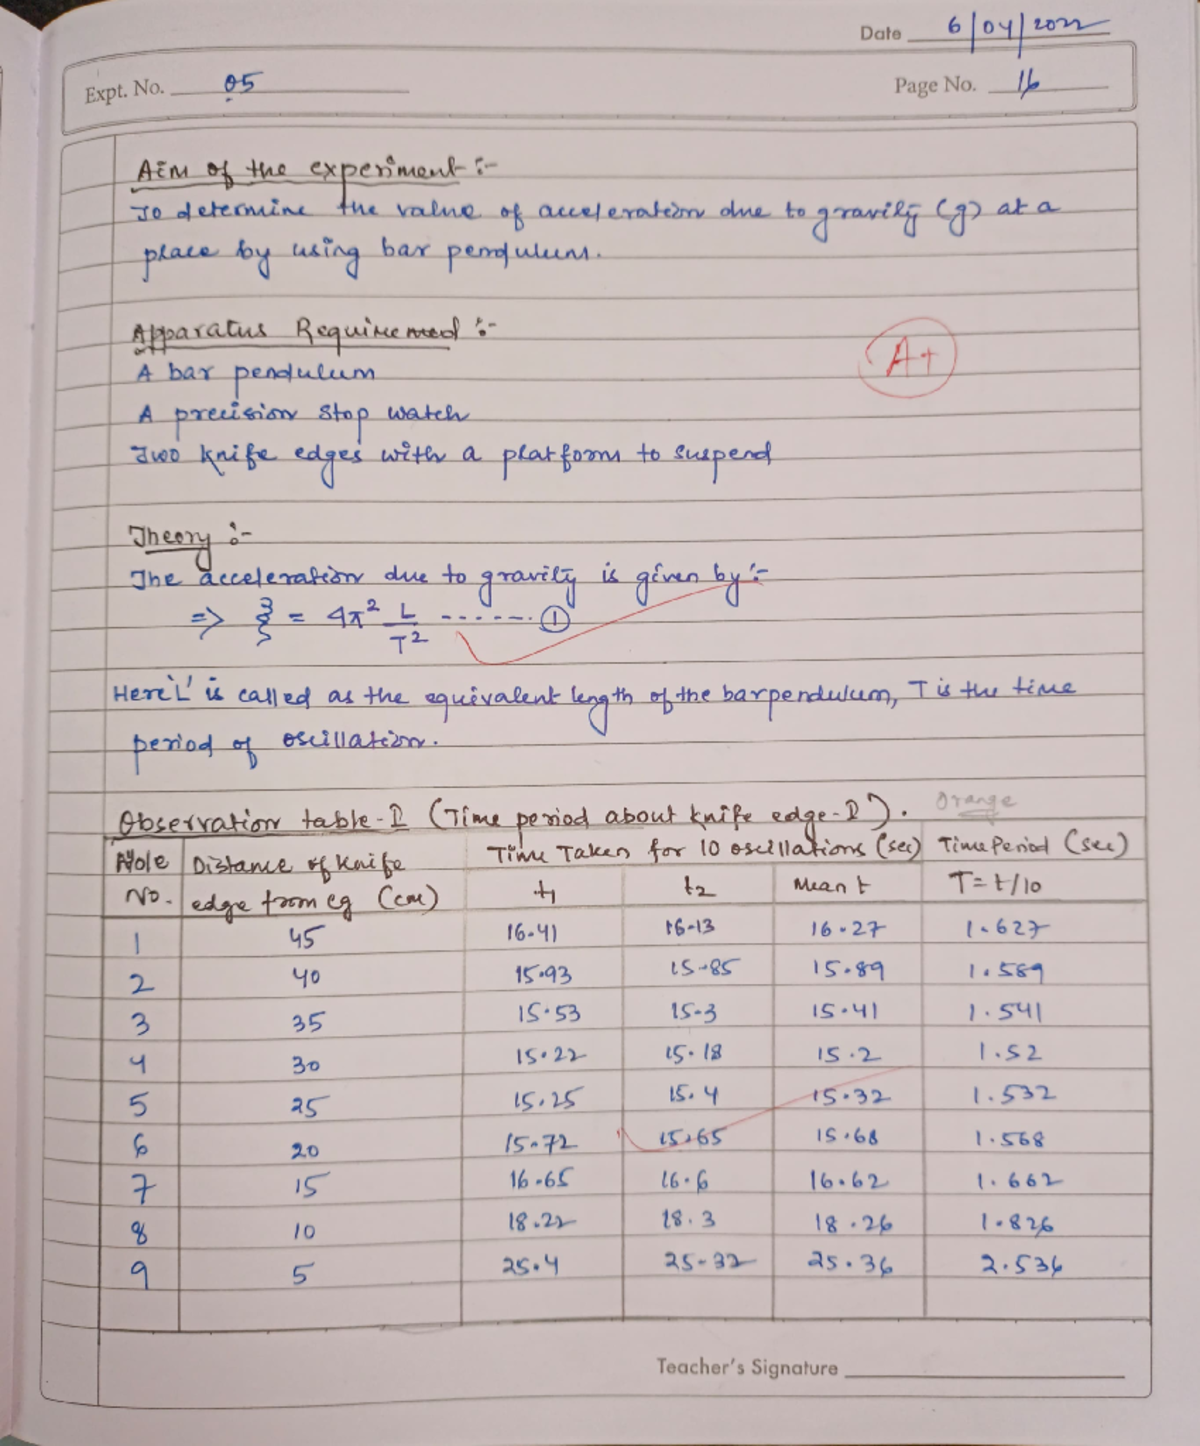 Date 6/04/2022
Expt. No. 05
Page No. 16
Aim of the experiment :-
To determine the value of acceleration due to gravity (g) at a
place by using bar pendulum.
Apparatus Requiremed :-
A+
A bar pendulum
A precision stop watch
Two knife edges with a platform to suspend
Theory :-
The acceleration due to gravity is given by :-
=> g = 4π² L/T² ------ ①
Here 'L' is called as the equivalent length of the bar pendulum, T is the time
period of oscillation.
Observation table-I (Time period about knife edge-I). Orange
Hole No. | Distance of knife edge from cg (cm) | Time Taken for 10 oscillations (sec) | Time Period (sec)
t1 | t2 | Mean t | T = t/10
1 | 45 | 16.41 | 16.13 | 16.27 | 1.627
2 | 40 | 15.93 | 15.85 | 15.89 | 1.589
3 | 35 | 15.53 | 15.3 | 15.41 | 1.541
4 | 30 | 15.22 | 15.18 | 15.2 | 1.52
5 | 25 | 15.25 | 15.4 | 15.32 | 1.532
6 | 20 | 15.72 | 15.65 | 15.68 | 1.568
7 | 15 | 16.65 | 16.6 | 16.62 | 1.662
8 | 10 | 18.22 | 18.3 | 18.26 | 1.826
9 | 5 | 25.4 | 25.32 | 25.36 | 2.536
Teacher's Signature